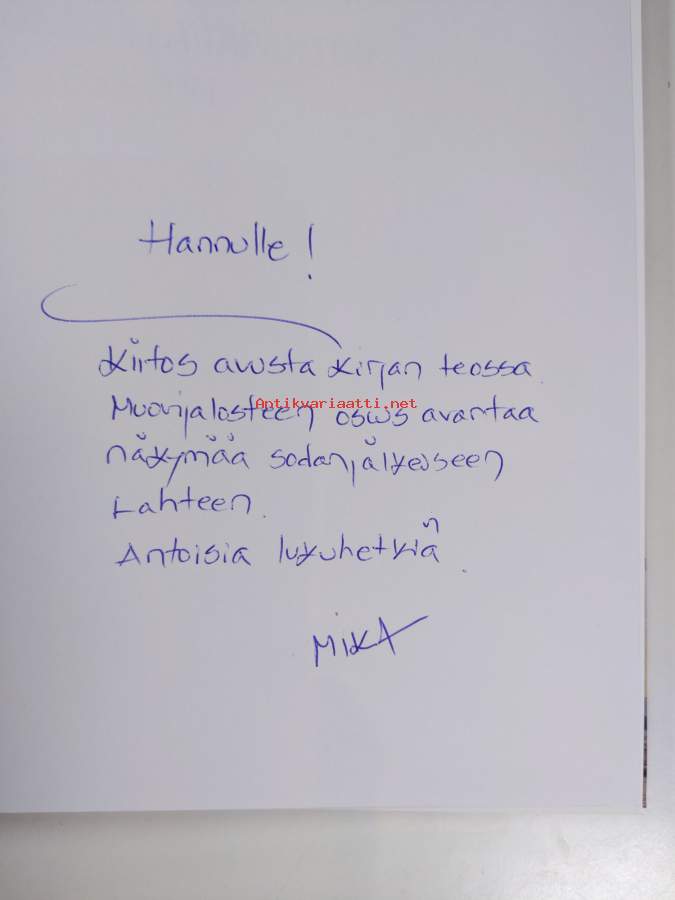 Hannulle!
Kiitos avusta kirjan teossa.
Antikvariaatti.net
Muovijalosteen osuus avartaa
näkymää sodanjälkeiseen
Lahteen.
Antoisia lukuhetkiä.
MIKA